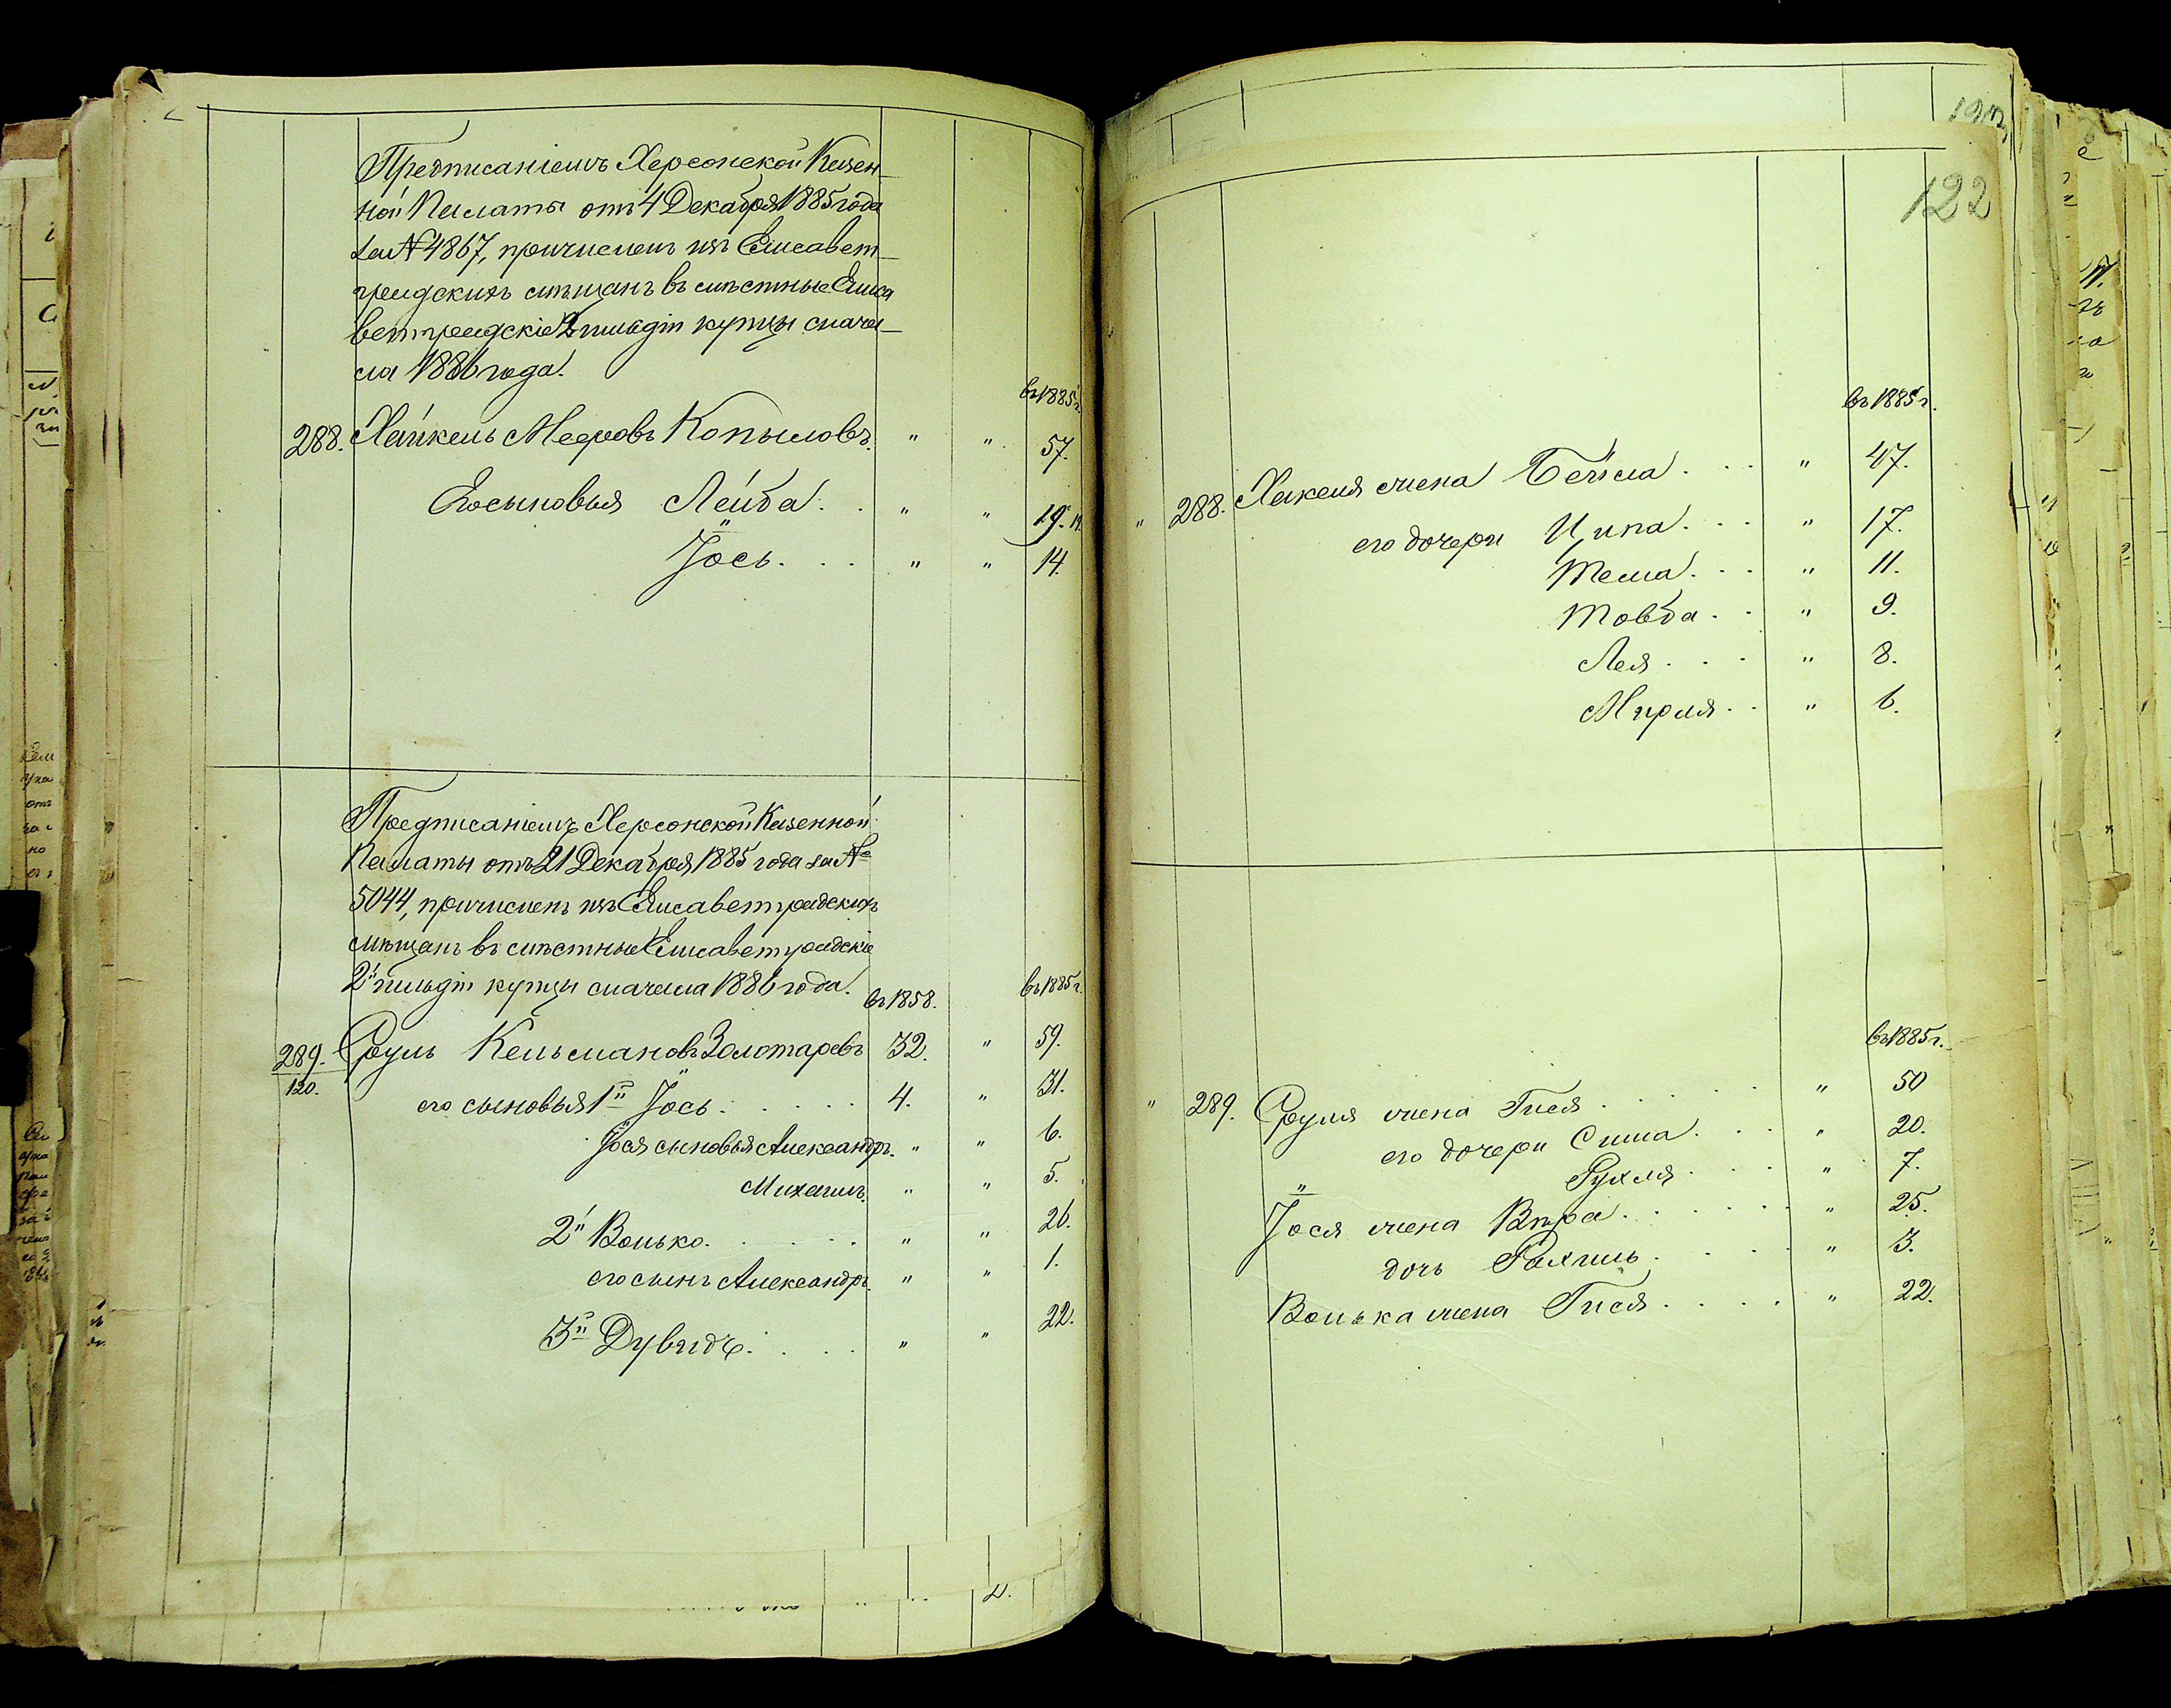 Предписаніемъ Херсонской Казен-
ной Палаты отъ 4 Декабря 1885 года
за № 4867, причисленъ изъ Елисавет-
градскихъ мѣщанъ въ мѣстные Елиса
ветградскіе 2 гильдіи купцы сначa-
ла 1886 года.
въ 1885 г.
288. Хайкель Мееровъ Копыловъ. " " 57.
Его сыновья Лейба . . " " 19.
Іось . . . " " 14.
Предписаніемъ Херсонской Казенной
Палаты отъ 21 Декабря 1885 года за №
5044, причисленъ изъ Елисаветградскихъ
мѣщанъ въ мѣстные Елисаветградскіе
2й гильдіи купцы сначала 1886 года.
въ 1858. въ 1885 г.
289. Сруль Кельмановъ Золотаревъ 32. " 59.
120.
его сыновья 1й Іось . . . . . 4. " 31.
Іося сыновья Александръ. " " 6.
Михаилъ. " " 5.
2й Волько. . . . . " " 26.
его сынъ Александръ. " " 1.
3й Дувидъ. . . . " " 22.
122
въ 1885 г.
" 288. Хакеля жена Бейла . . . " 47.
его дочери Ципа . . . " 17.
Тема . . . " 11.
Товба . . " 9.
Лея . . . " 8.
Мирля . . " 6.
въ 1885 г.
" 289. Сруля жена Гися . . . . " 50
его дочери Сима . . . " 20.
Рухля . . . " 7.
Іося жена Вѣра . . . . . " 25.
дочь Рахиль . . . . " 3.
Волька жена Гися . . . . " 22.